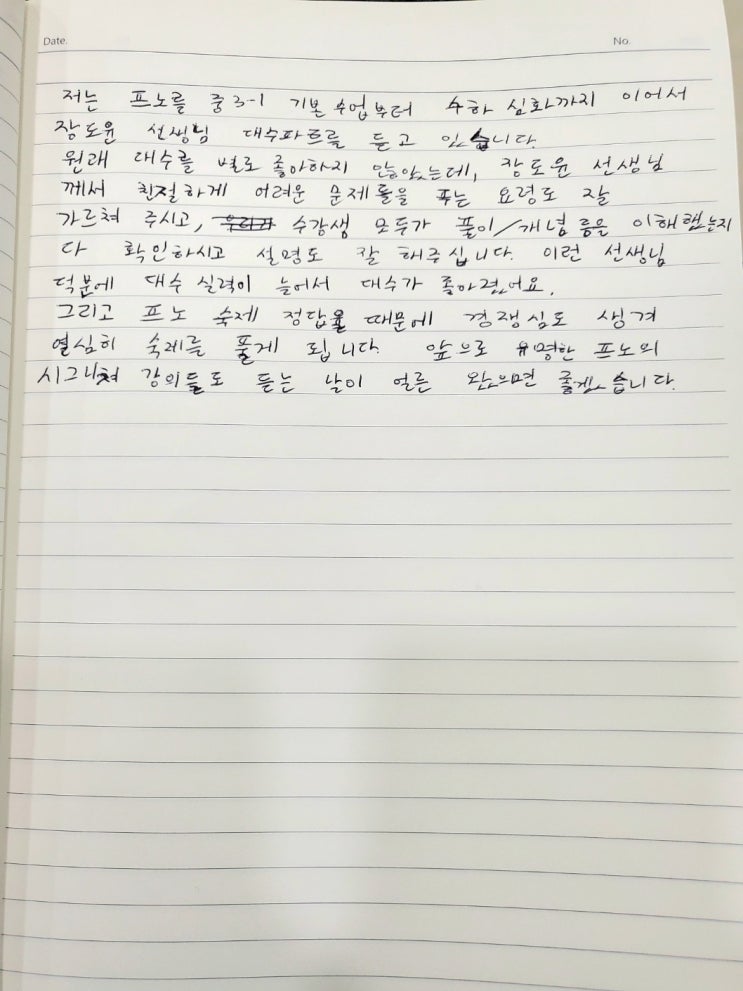 Date.
No.
저는 프노를 중3-1 기본 수업부터 수하 심화까지 이어서
장도윤 선생님 대수파트를 듣고 있습니다.
원래 대수를 별로 좋아하지 않았는데, 장도윤 선생님
께서 친절하게 어려운 문제들을 푸는 요령도 잘
가르쳐 주시고, 수강생 모두가 풀이/개념 등을 이해했는지
다 확인하시고 설명도 잘 해주십니다. 이런 선생님
덕분에 대수 실력이 늘어서 대수가 좋아졌어요.
그리고 프노 숙제 정답률 때문에 경쟁심도 생겨
열심히 숙제를 풀게 됩니다. 앞으로 유명한 프노의
시그니쳐 강의들도 듣는 날이 얼른 왔으면 좋겠습니다.